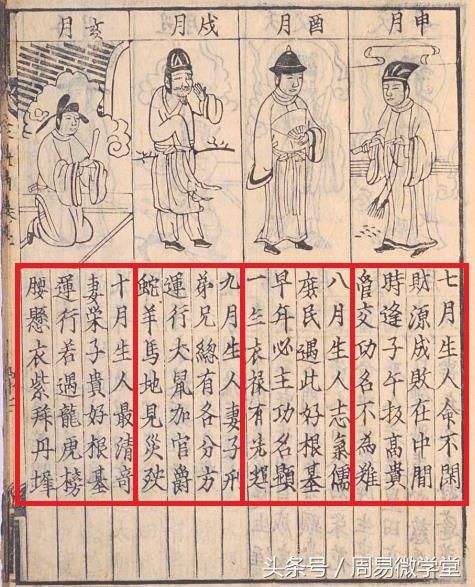 申月
七月生人命不閑
財源成敗在中間
時逢子午扳高貴
管交功名不為難
酉月
八月生人志氣儒
庶民遇此好根基
早年必主功名顯
一 衣祿有先
戌月
九月生人妻子刑
弟兄總有各分方
運行大鼠加官爵
蛇羊馬地見災殃
亥月
十月生人最清奇
妻榮子貴好根基
運行若遇龍虎榜
腰懸衣紫拜丹墀
头条号 / 周易微学堂